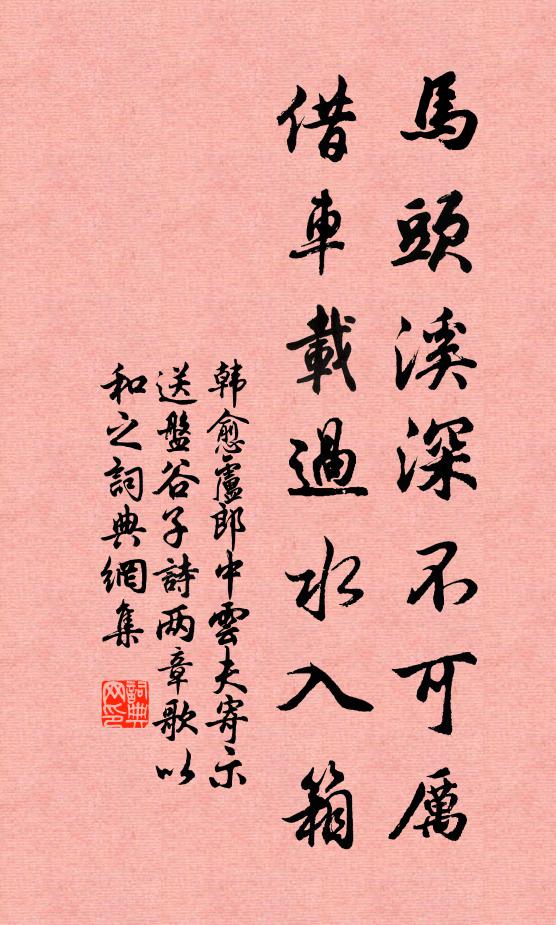 馬頭溪深不可厲
借車載過水入箱
韩愈盧郎中雲夫寄示
送盤谷子詩两章歌以
和之詞典網集
詞典
网印